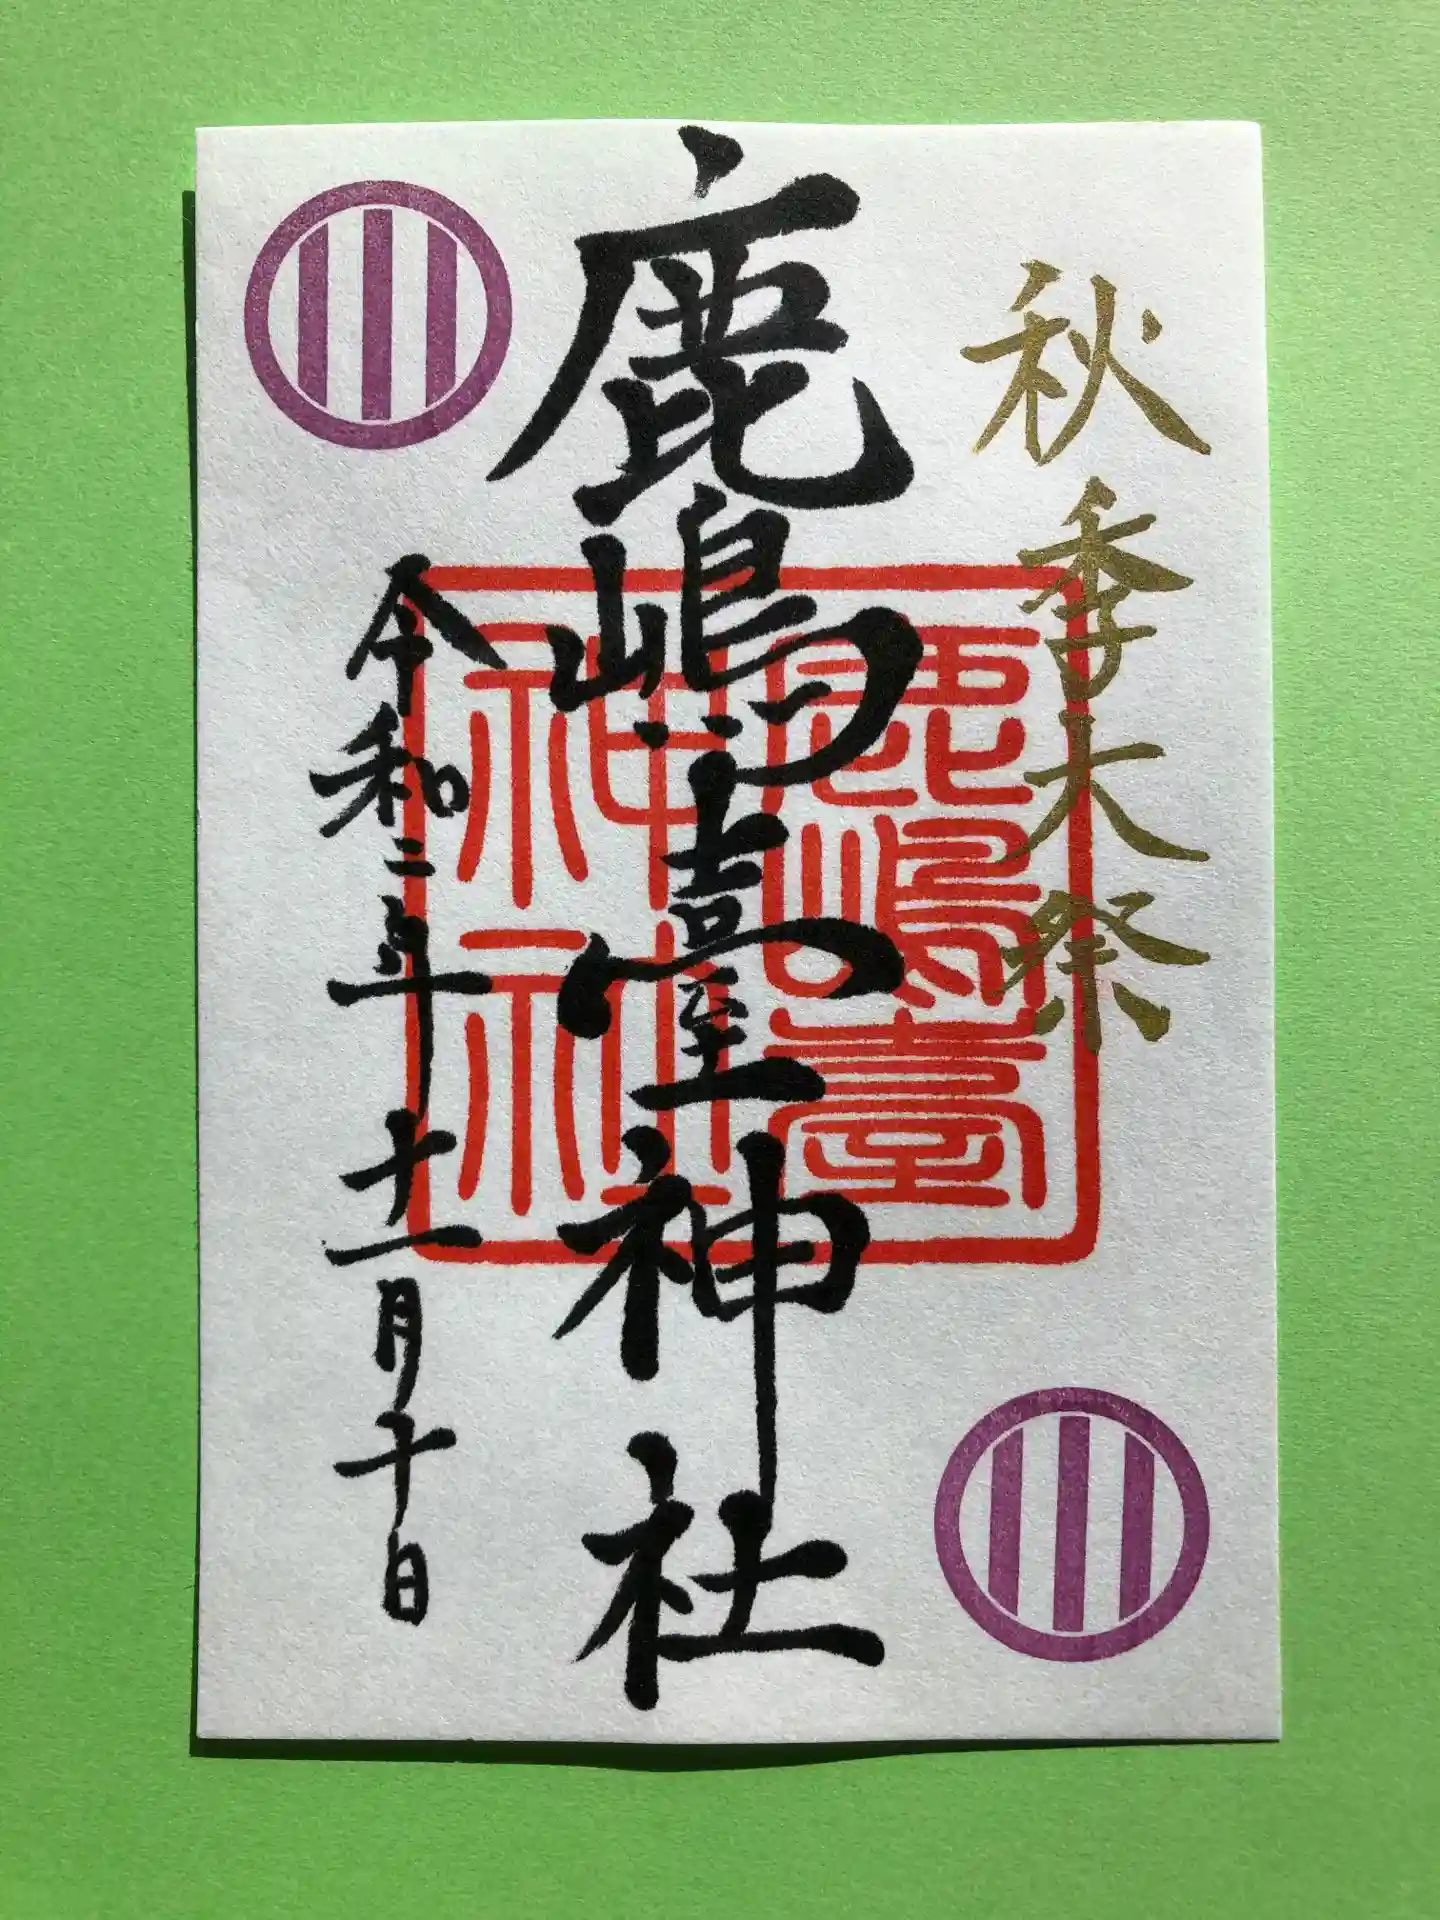 秋季大祭
鹿嶋臺神社
鹿嶋臺
神社
令和二年十一月十日